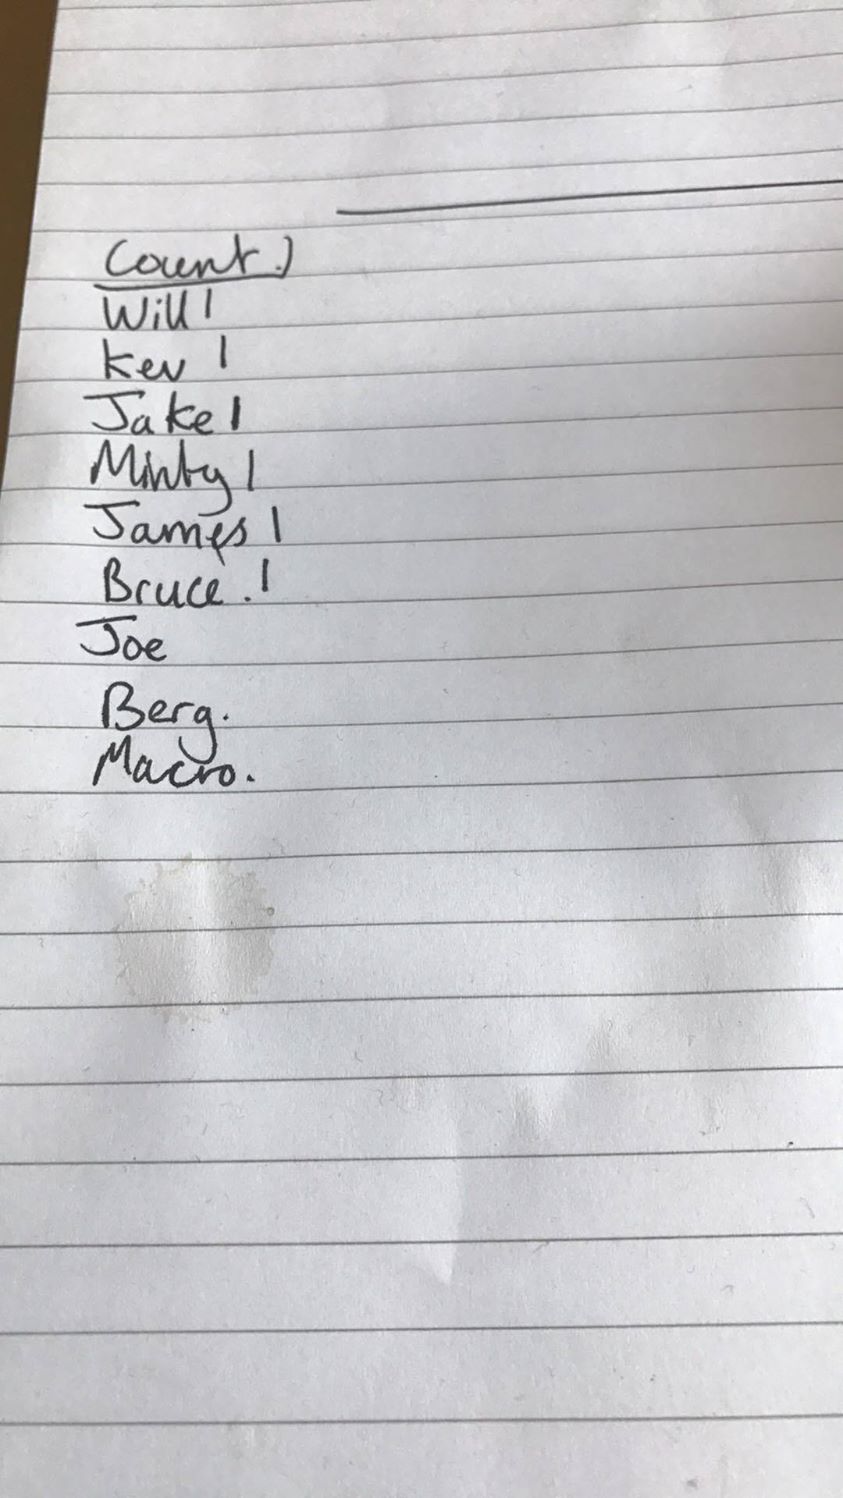 Count.)
Will |
Kev |
Jake |
Minty |
James |
Bruce. |
Joe
Berg.
Macro.